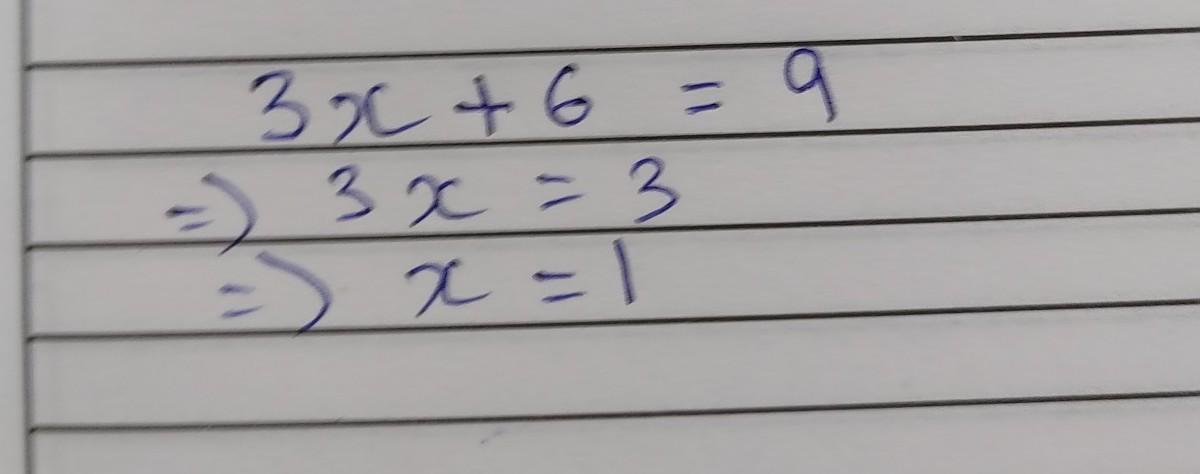 3x + 6 = 9
=> 3x = 3
=> x = 1